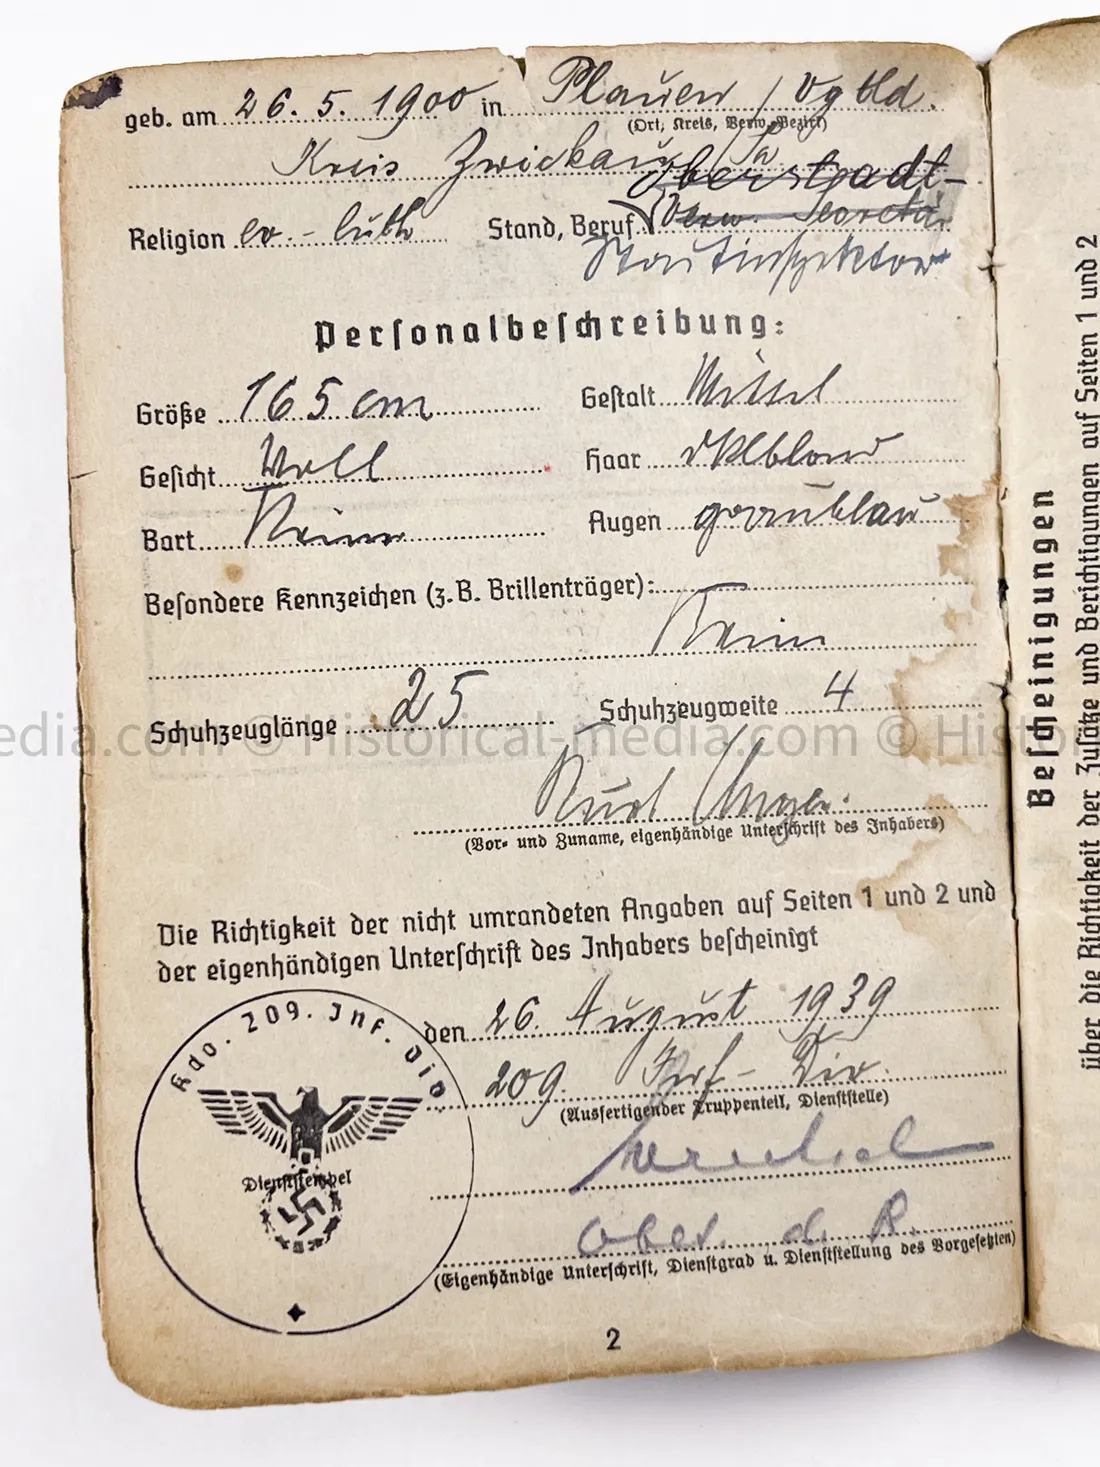 geb. am 26. 5. 1900 in Plauen / Vgtld.
(Ort, Kreis, Verw.-Bezirk)
Kreis Zwickau / Sa
Oberstadt-
Religion ev.-luth Stand, Beruf Verw. Secretär
Stadtinspektor
Personalbeschreibung:
Größe 165 cm Gestalt Mittel
Gesicht Voll Haar dklblond
Bart Keinen Augen graublau
Besondere Kennzeichen (z. B. Brillenträger):
Keine
Schuhzeuglänge 25 Schuhzeugweite 4
edia.com © Historical-media.com © Histor
Kurt Unger.
(Vor- und Zuname, eigenhändige Unterschrift des Inhabers)
Die Richtigkeit der nicht umrandeten Angaben auf Seiten 1 und 2 und
der eigenhändigen Unterschrift des Inhabers bescheinigt
den 26. August 1939
209. Inf-Div.
(Ausfertigender Truppenteil, Dienststelle)
Obet. d. R.
(Eigenhändige Unterschrift, Dienstgrad u. Dienststellung des Vorgesetzten)
Kdo. 209. Inf. Div.
Dienststempel
2
Bescheinigungen
über die Richtigkeit der Zusätze und Berichtigungen auf Seiten 1 und 2